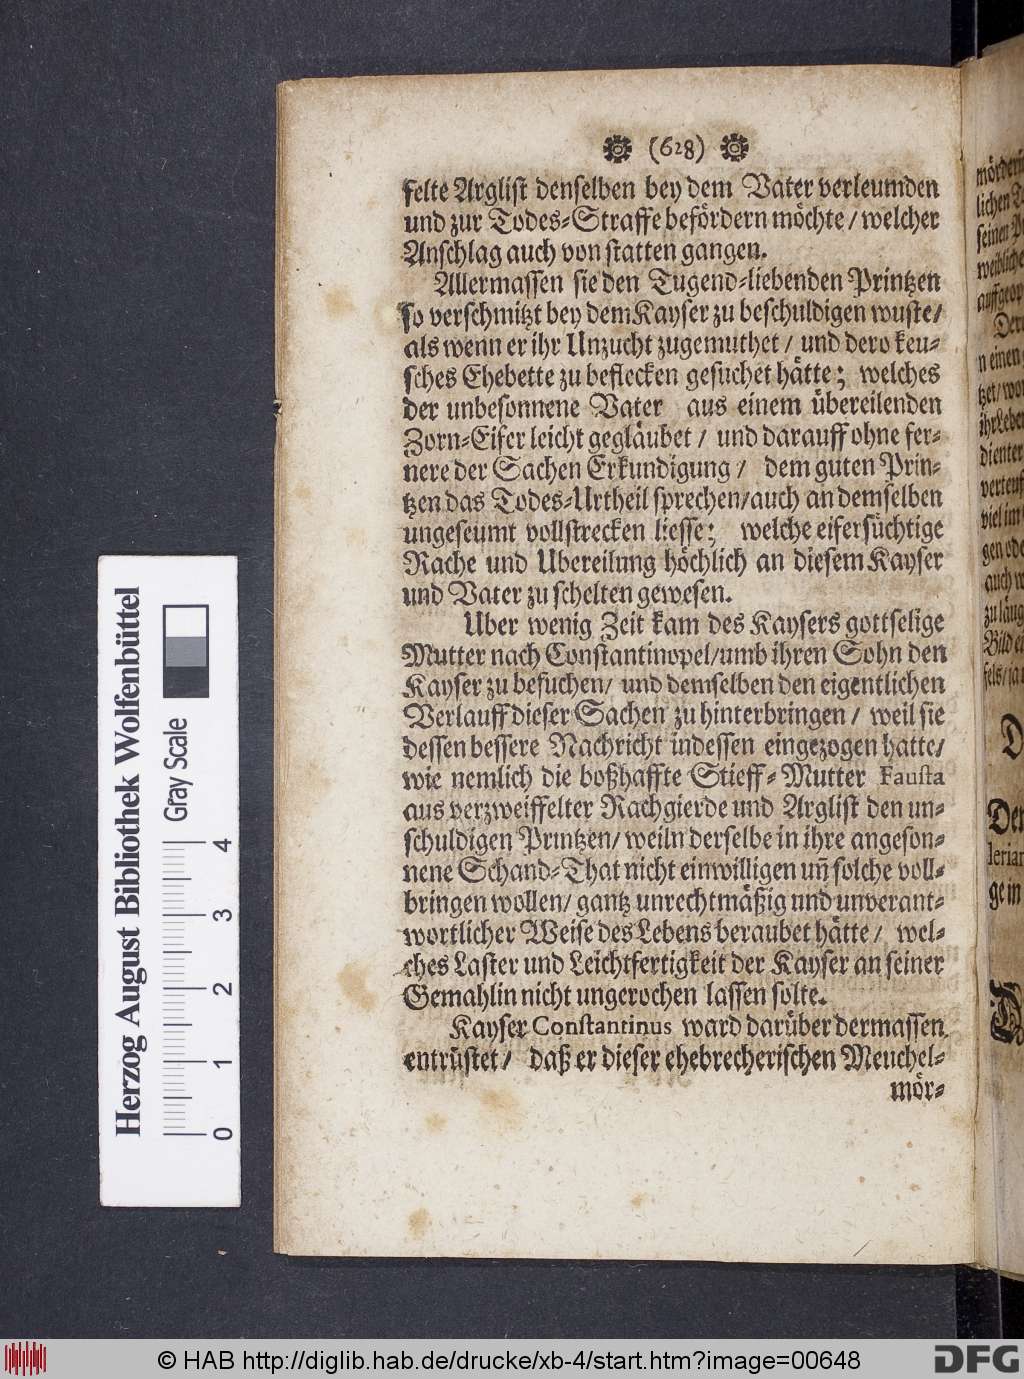 (628)
felte Arglist denselben bey dem Vater verleumden
und zur Todes-Straffe befördern möchte / welcher
Anschlag auch von statten gangen.
Allermassen sie den Tugend-liebenden Printzen
so verschmitzt bey dem Kayser zu beschuldigen wuste /
als wenn er ihr Unzucht zugemuthet / und dero keu-
sches Ehebette zu beflecken gesuchet hätte; welches
der unbesonnene Vater aus einem übereilenden
Zorn-Eifer leicht gegläubet / und darauff ohne fer-
nere der Sachen Erkundigung / dem guten Prin-
tzen das Todes-Urtheil sprechen / auch an demselben
ungeseumt vollstrecken liesse; welche eifersüchtige
Rache und Ubereilung höchlich an diesem Kayser
und Vater zu schelten gewesen.
Uber wenig Zeit kam des Kaysers gottselige
Mutter nach Constantinopel / umb ihren Sohn den
Kayser zu besuchen / und demselben den eigentlichen
Verlauff dieser Sachen zu hinterbringen / weil sie
dessen bessere Nachricht indessen eingezogen hatte /
wie nemlich die boßhaffte Stieff-Mutter Fausta
aus verzweiffelter Rachgierde und Arglist den un-
schuldigen Printzen / weiln derselbe in ihre angeson-
nene Schand-That nicht einwilligen uñ solche voll-
bringen wollen / gantz unrechtmäßig und unverant-
wortlicher Weise des Lebens beraubet hätte / wel-
ches Laster und Leichtfertigkeit der Kayser an seiner
Gemahlin nicht ungerochen lassen solte.
Kayser Constantinus ward darüber dermassen
entrüstet / daß er dieser ehebrecherischen Meuchel-
mör-
Herzog August Bibliothek Wolfenbüttel
Gray Scale
0 1 2 3 4
© HAB http://diglib.hab.de/drucke/xb-4/start.htm?image=00648
DFG